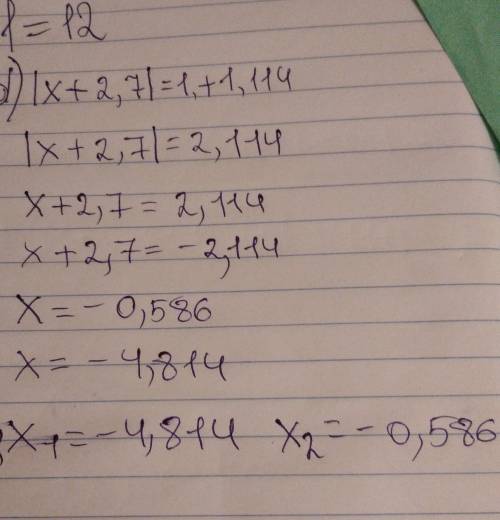 1=12
d) |x+2,7|=1,+1,114
|x+2,7|=2,114
x+2,7=2,114
x+2,7=-2,114
x=-0,586
x=-4,814
x₁=-4,814 x₂=-0,586